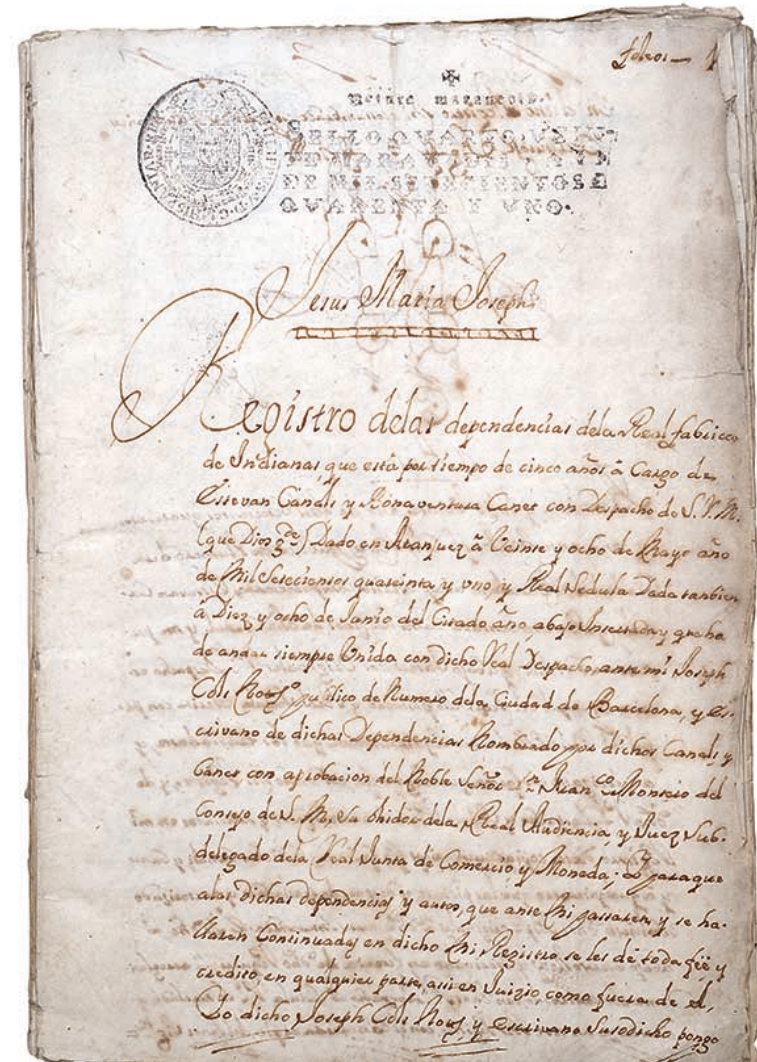 1
Veinte maravedis.
SELLO QVARTO, VEIN-
TE MARAVEDIS, AÑO
DE MIL SETECIENTOS
QVARENTA Y VNO.
Jesus Maria Joseph
Registro delas dependencias dela Real fabrica
de Indianas, que està por tiempo de cinco años à Cargo de
Estevan Canals y Bonaventura Canet con Despacho de S. R. M.
(que Dios gde) Dado en Aranjuez à Veinte y ocho de Mayo año
de Mil Setecientos quareinta y uno y Real Sedula Dada tanbien
à Diez y ocho de Junio del Citado año, abajo Insertada y que ha
de andar siempre Unida con dicho Real Despacho, ante mi Joseph
Cols Noto publico de Numero dela Ciudad de Barcelona, y Es-
crivano de dichas Dependencias Nombrado por dichos Canals, y
Canet con aprobacion del Noble Señor Dn Juan co Monseio del
Consejo de S. M. Su Ohidor dela Real Audiencia, y Juez Sub-
delegado dela Real Junta de Comercio y Moneda; Y paraque
alas dichas dependencias y autos, que ante Mi passaren, y se ha-
llaren Continuadas en dicho Mi Registro se les dé toda feè y
credito, en qualquier parte, assi en Juizio, como fuera de el,
Yo dicho Joseph Cols Noto y Escrivano Susodicho pongo